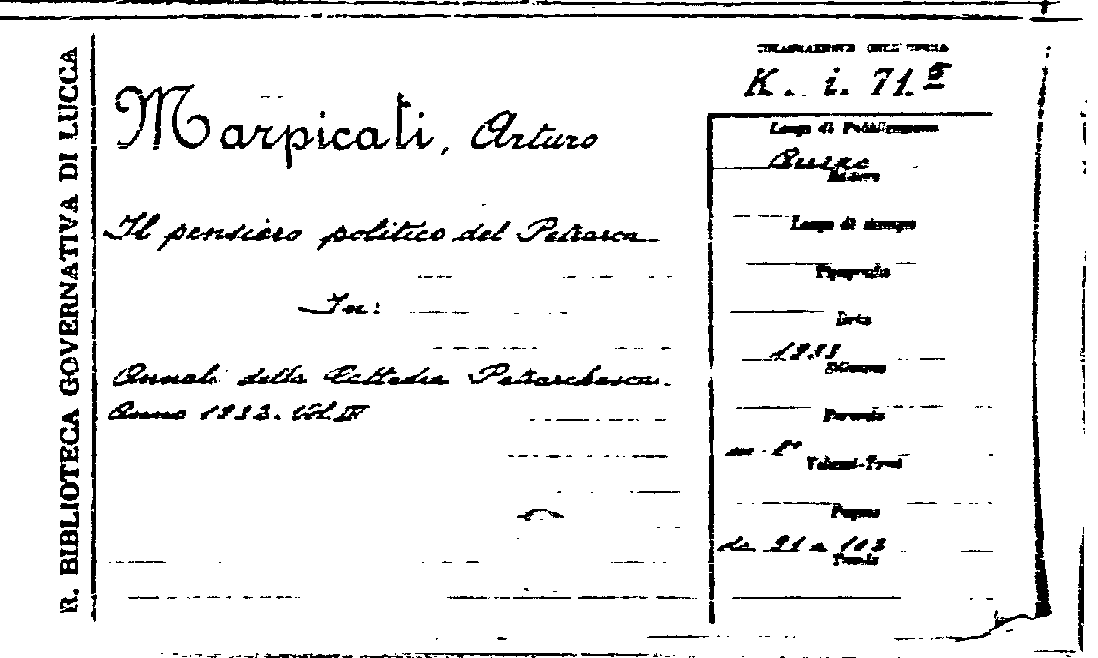 R. BIBLIOTECA GOVERNATIVA DI LUCCA
COLLOCAZIONE DELL'OPERA
K. i. 71.5
Marpicati, Arturo
Il pensiero politico del Petrarca.
In:
Annali della Cattedra Petrarchesca.
Anno 1932. Vol. III
Luogo di Pubblicazione
Arezzo
Editore
Luogo di stampa
Tipografia
Data
1933
Edizione
Formato
in - 8°
Volumi-Tomi
Pagine
da 91 a 103
Tavole